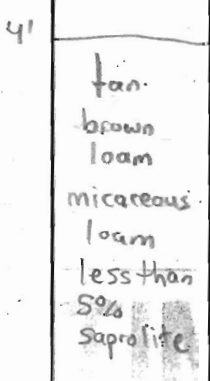 4'
tan.
brown
loam
micareous
loam
less than
5%
saprolite